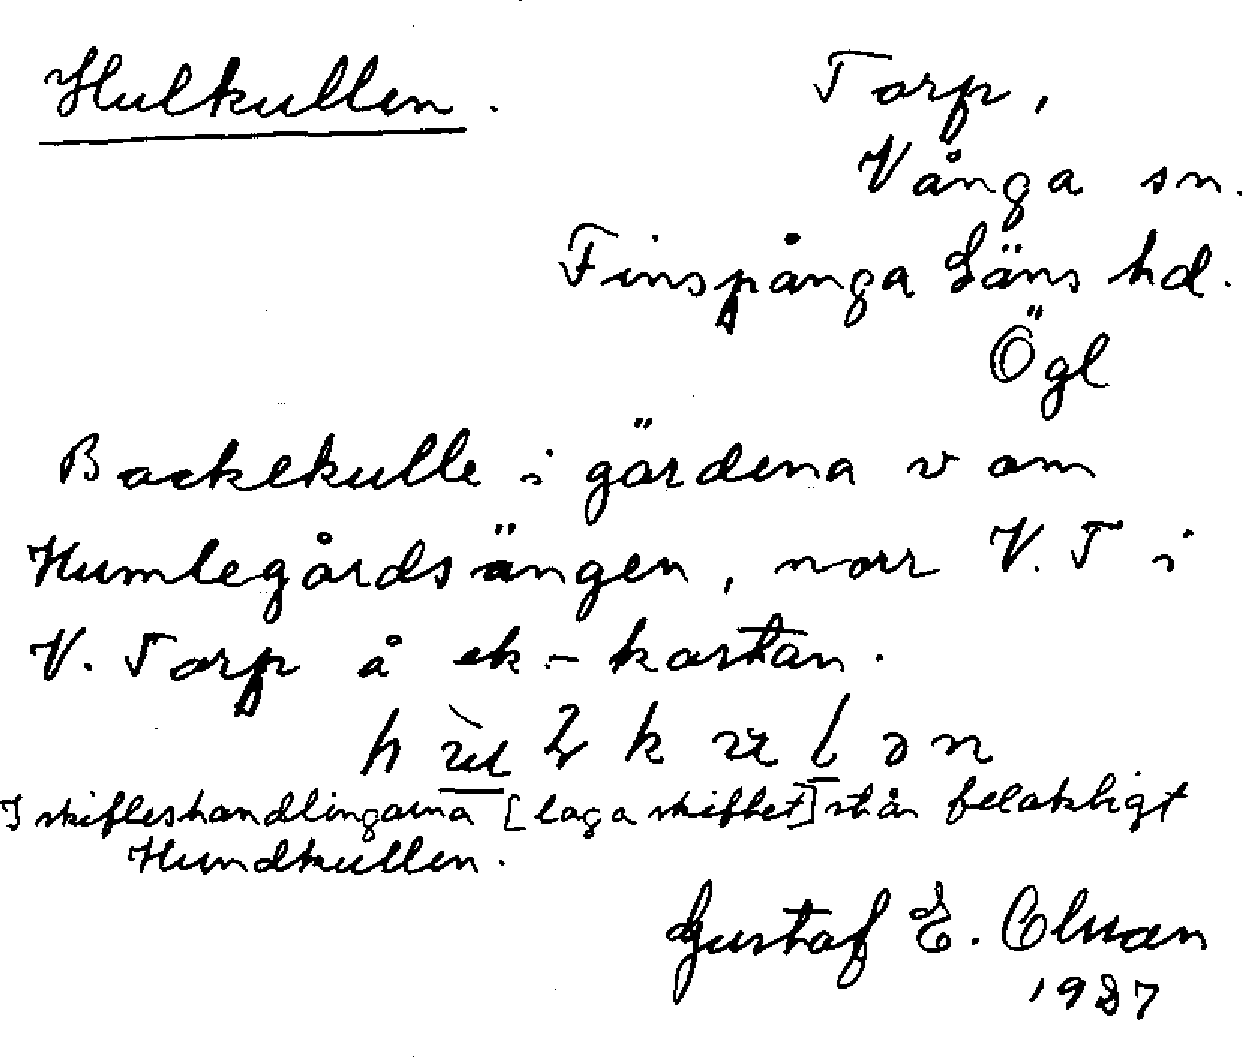 Hulkullen.
Torp,
Vånga sn.
Finspånga Läns hd.
Ögl
Backekulle i gärdena v om
Humlegårdsängen, norr V. T i
V. Torp å ek-kartan.
I skifteshandlingarna [laga skiftet] står felaktigt
Hundkullen.
Gustaf E.